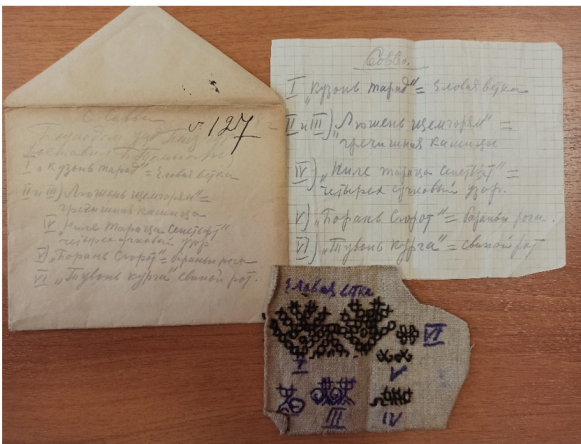 с. Савва
127
I „Кузонь тарад" = Еловая ветка
II и III) „Люжень щемгорям" =
гречишная кашица
IV) „Ниле тараца сенстѳрт"
четырех сучковый узор.
V) „Борань Сюрот" = бараньи рога
VI „Тувонь курга" свиной рот.
Савва.
I „Кузонь тарад" = Еловая ветка
II и III) „Люжень щемгорям" =
гречишная кашица
IV) „Ниле тараца =
четырех сучковый узор.
V) „Борань Сюрот" = бараньи рога.
VI) „Тувонь курга" = свиной рот
Еловая ветка
I
III
IV
V
VI